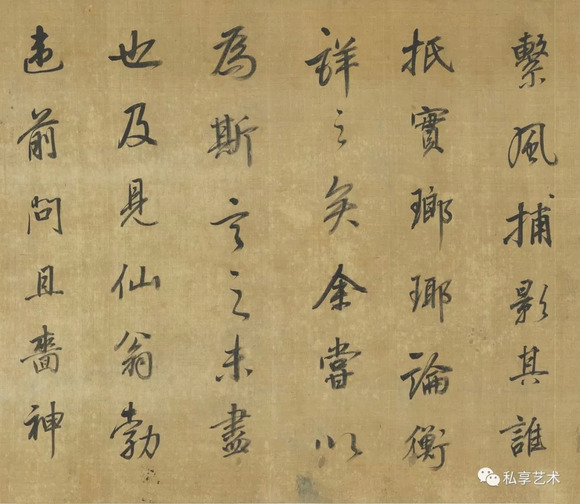 繫風捕影其誰
抵實瑯瑘論衡
詳之矣余嘗以
為斯言之未盡
也及見仙翁勃
違前問且嗇神
私享艺术